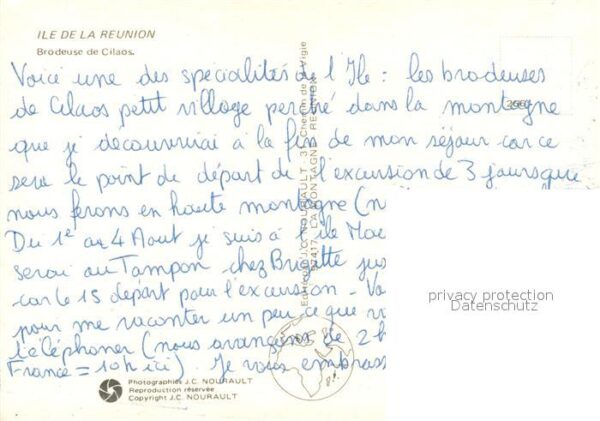 ILE DE LA REUNION
Brodeuse de Cilaos.
Voici une des spécialités de l'Ile : les brodeuses
de Cilaos petit village perché dans la montagne
que je découvrirai à la fin de mon séjour car ce
sera le point de départ de l'excursion de 3 jours que
nous ferons en haute montagne (n
Du 1e au 4 Aout je suis à l'île Mau
serai au Tampon chez Brigitte jus
car le 15 départ pour l'excursion - Vo
pour me raconter un peu ce que vo
téléphoner (nous avançons de 2 h
France = 10h ici). Je vous embrass
Editions J.C. NOURAULT . 37 Chemin de la Vigie
97417. LA MONTAGNE - REUNION
privacy protection
Datenschutz
Photographies J.C. NOURAULT
Reproduction réservée
Copyright J.C. NOURAULT